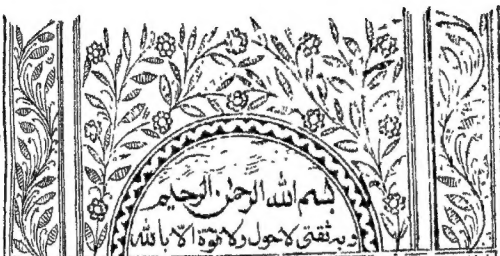 بسم الله الرحمن الرحيم
وبه ثقتى لا حول ولا قوة الا بالله